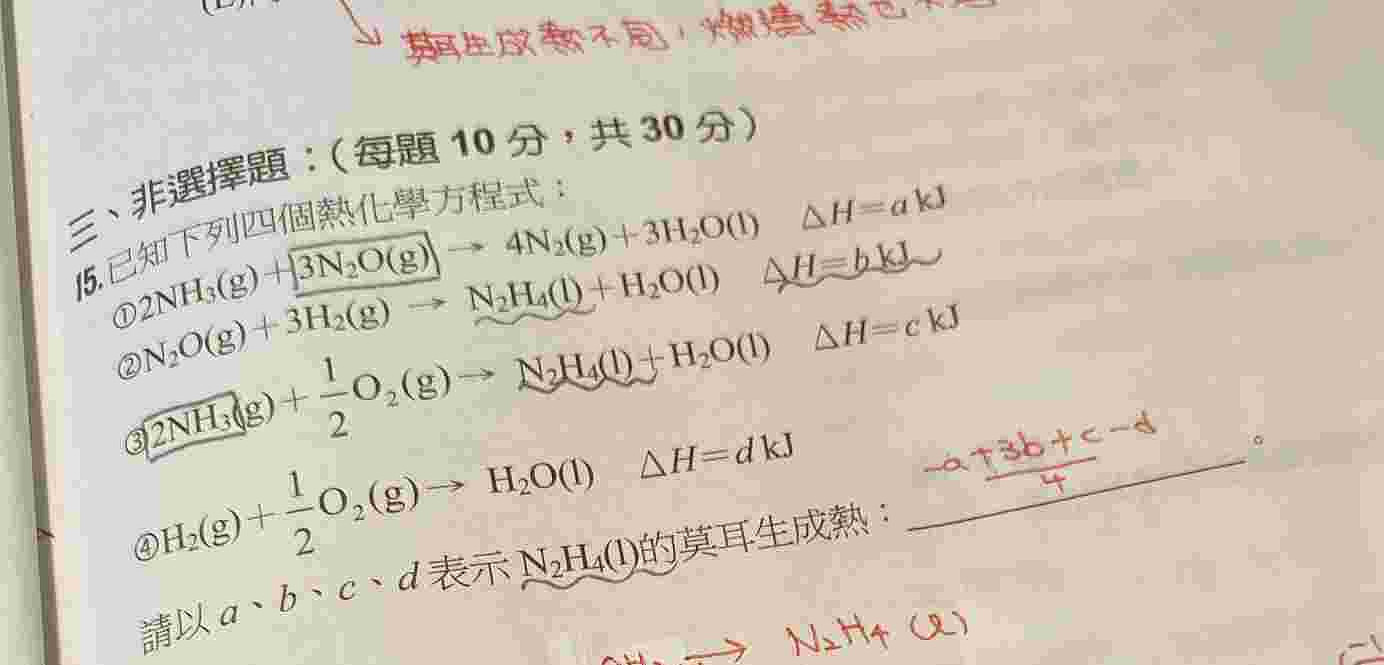 莫耳生成熱不同，燃燒熱也
三、非選擇題：（每題 10 分，共 30 分）
15.已知下列四個熱化學方程式：
①2NH₃(g)＋3N₂O(g) → 4N₂(g)＋3H₂O(l) △H＝a kJ
②N₂O(g)＋3H₂(g) → N₂H₄(l)＋H₂O(l) △H＝b kJ
③2NH₃(g)＋1/2 O₂(g)→ N₂H₄(l)＋H₂O(l) △H＝c kJ
④H₂(g)＋1/2 O₂(g)→ H₂O(l) △H＝d kJ
請以 a、b、c、d 表示 N₂H₄(l)的莫耳生成熱：(-a+3b+c-d)/4。
→ N₂H₄ (l)